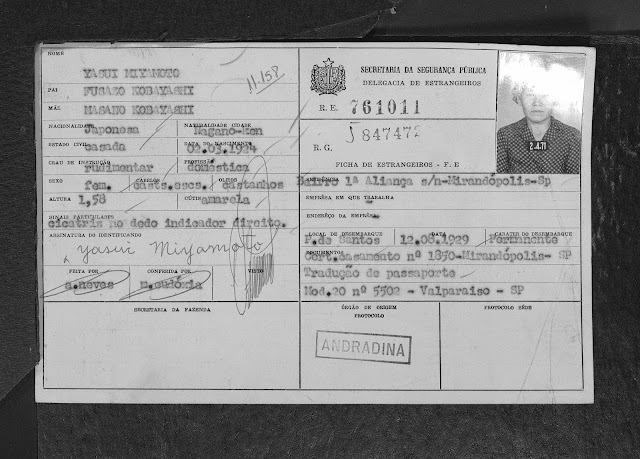 NOME
YASUI MIYAMOTO
PAI
FUSAZO KOBAYASHI
MÃE
MASANO KOBAYASHI
NACIONALIDADE NATURALIDADE CIDADE
Japonesa Nagano-Ken
ESTADO CIVIL DATA DO NASCIMENTO
casada
GRAU DE INSTRUÇÃO PROFISSÃO
rudimentar doméstica
SEXO CABELOS OLHOS
fem. casts.escs. castanhos
ALTURA CÚTIS
1,58 amarela
SINAIS PARTICULARES
cicatris no dedo indicador direito.
ASSINATURA DO IDENTIFICANDO
Yasui Miyamoto
FEITA POR CONFERIDA POR VISTO
a.neves m.eudóxia
SECRETARIA DA FAZENDA
11.158
SECRETARIA DA SEGURANÇA PÚBLICA
DELEGACIA DE ESTRANGEIROS
R. E. 761011
R. G. 847472
FICHA DE ESTRANGEIROS - F. E
2.4.71
RESIDÊNCIA
Bairro 1ª Aliança s/n-Mirandópolis-Sp
EMPRÊSA EM QUE TRABALHA
ENDERÊÇO DA EMPRÊSA
LOCAL DE DESEMBARQUE DATA CARATER DO DESEMBARQUE
P.de Santos 12.08.1929 Permanente
DOCUMENTOS
Cert.Casamento nº 1350-Mirandópolis- SP
Tradução de passaporte
Mod.20 nº 5502 - Valparaiso - SP
ÓRGÃO DE ORIGEM
PROTOCOLO
PROTOCOLO SÉDE
ANDRADINA